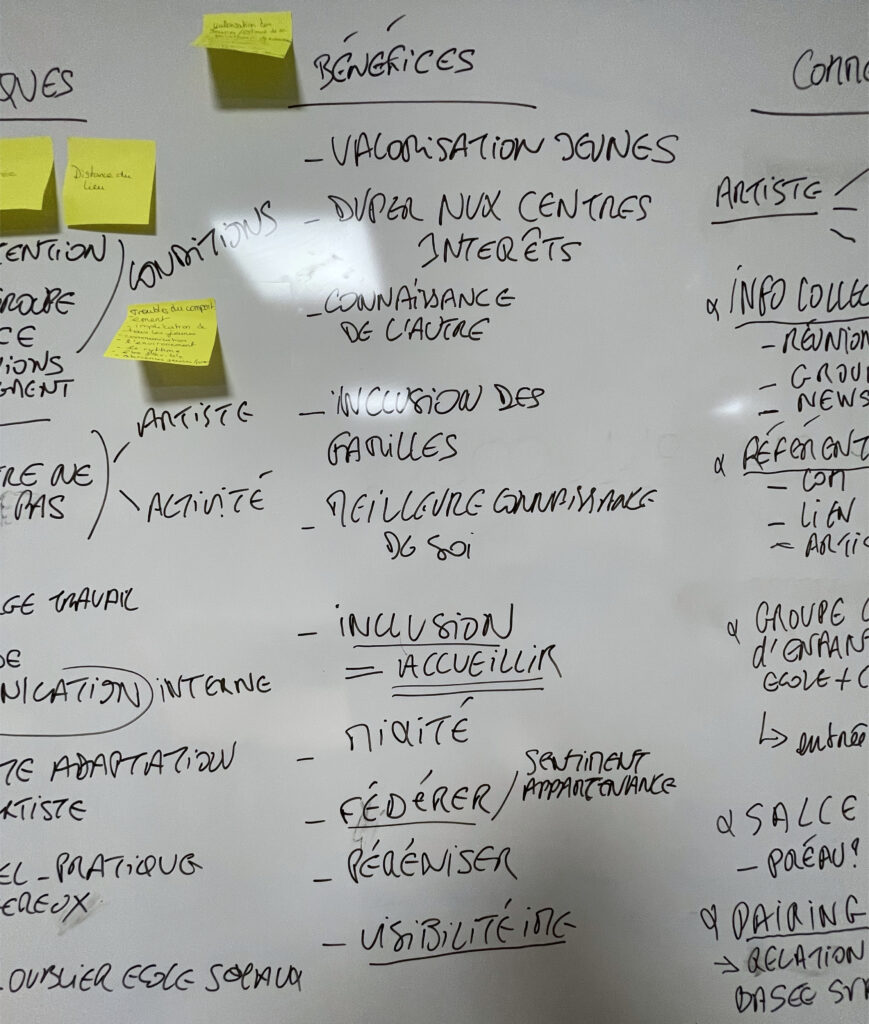 QUES
Distance du
lieu
TENTION
GROUPE
CE
IONS
GEMENT
CONDITIONS
Troubles du comport
ement
- implication de
tous les jeunes
- communication
RE NE
PAS
ARTISTE
ACTIVITÉ
GE TRAVAIL
DE
NICATION INTERNE
TE ADAPTATION
RTISTE
EL - PRATIQUE
EREUX
OUBLIER ECOLE
BÉNÉFICES
- VALORISATION JEUNES
- DVPER NVX CENTRES
INTERÊTS
- CONNAISSANCE
DE L'AUTRE
- INCLUSION DES
FAMILLES
- MEILLEURE CONNAISSANCE
DE SOI
- INCLUSION
= ACCUEILLIR
- MIXITÉ
- FÉDÉRER / SENTIMENT
APPARTENANCE
- PÉRÉNISER
- VISIBILITÉ IME
CONN
ARTISTE
INFO COLLEC
- RÉUNION
- GROUP
- NEWS
RÉFÉRENT
- COM
- LIEN
= ARTIS
GROUPE C
d'ENFAN
ECOLE + C
↳ entrée
SALLE
- PRÉAU?
PAIRING
→ RELATION
BASEE SUR